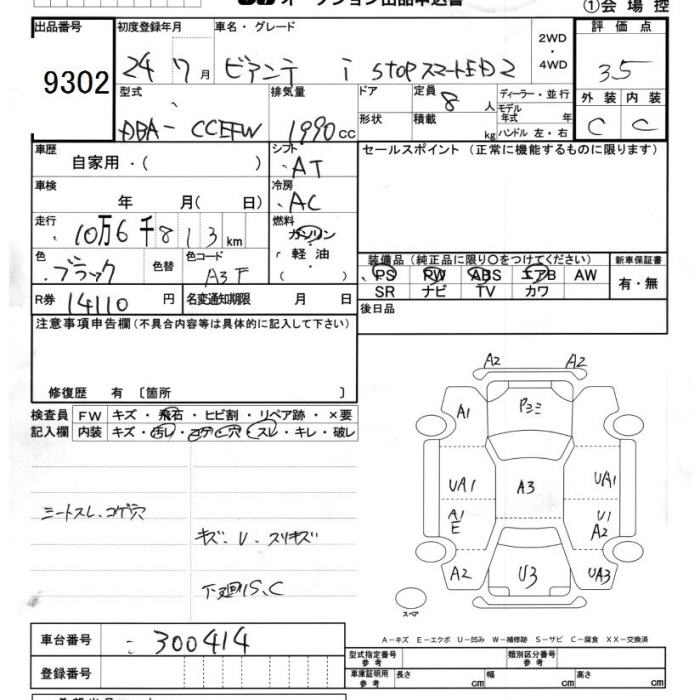 オークション出品申込書 ①会場控
出品番号 初度登録年月 車名・グレード 2WD・4WD 評価点
9302 24 7月 ビアンテ i STOP スマートED2 3.5
型式 排気量 ドア 定員 8人 ディーラー・並行 外装 内装
DBA-CCEFW 1990cc 形状 積載 kg モデル年式 年 ハンドル 左・右 C C
車歴 自家用・( ) シフト AT セールスポイント (正常に機能するものに限ります)
車検 年 月( 日) 冷房 AC
走行 10万6千813km 燃料 ガソリン・軽油・( )
色 ブラック 色替 色コード A3F
装備品 (純正品に限り〇をつけてください) 新車保証書
PS PW ABS エアB AW 有・無
SR ナビ TV カワ
R券 14110円 名変通知期限 月 日 後日品
注意事項申告欄 (不具合内容等は具体的に記入して下さい)
修復歴 有 〔箇所 〕
検査員記入欄 FW キズ・飛石・ヒビ割・リペア跡・×要
内装 キズ・汚レ・コゲ・穴・スレ・キレ・破レ
シートスレ.コゲ穴
キズ.U.スリキズ
下廻りS、C
A2 A2
A1 P3ミ
UA1 A3 UA1
A1 E U1 A2
A2 U3 UA3
スペア
A-キズ E-エクボ U-凹み W-補修跡 S-サビ C-腐食 XX-交換済
車台番号 300414
登録番号
型式指定番号 参考 類別区分番号 参考
車庫証明用 参考 長さ cm 幅 cm 高さ cm